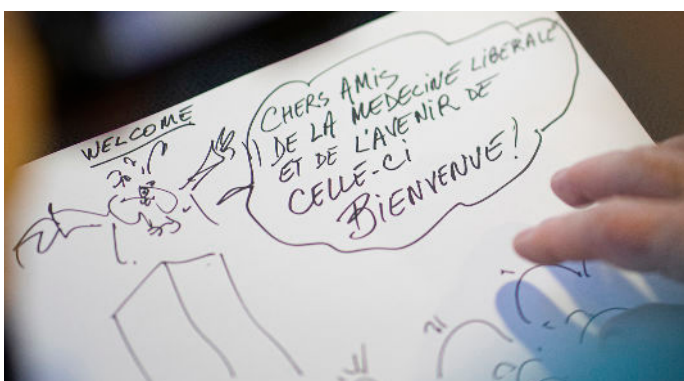 WELCOME
CHERS AMIS
DE LA MEDECINE LIBERALE
ET DE L'AVENIR DE
CELLE-CI
BIENVENUE!